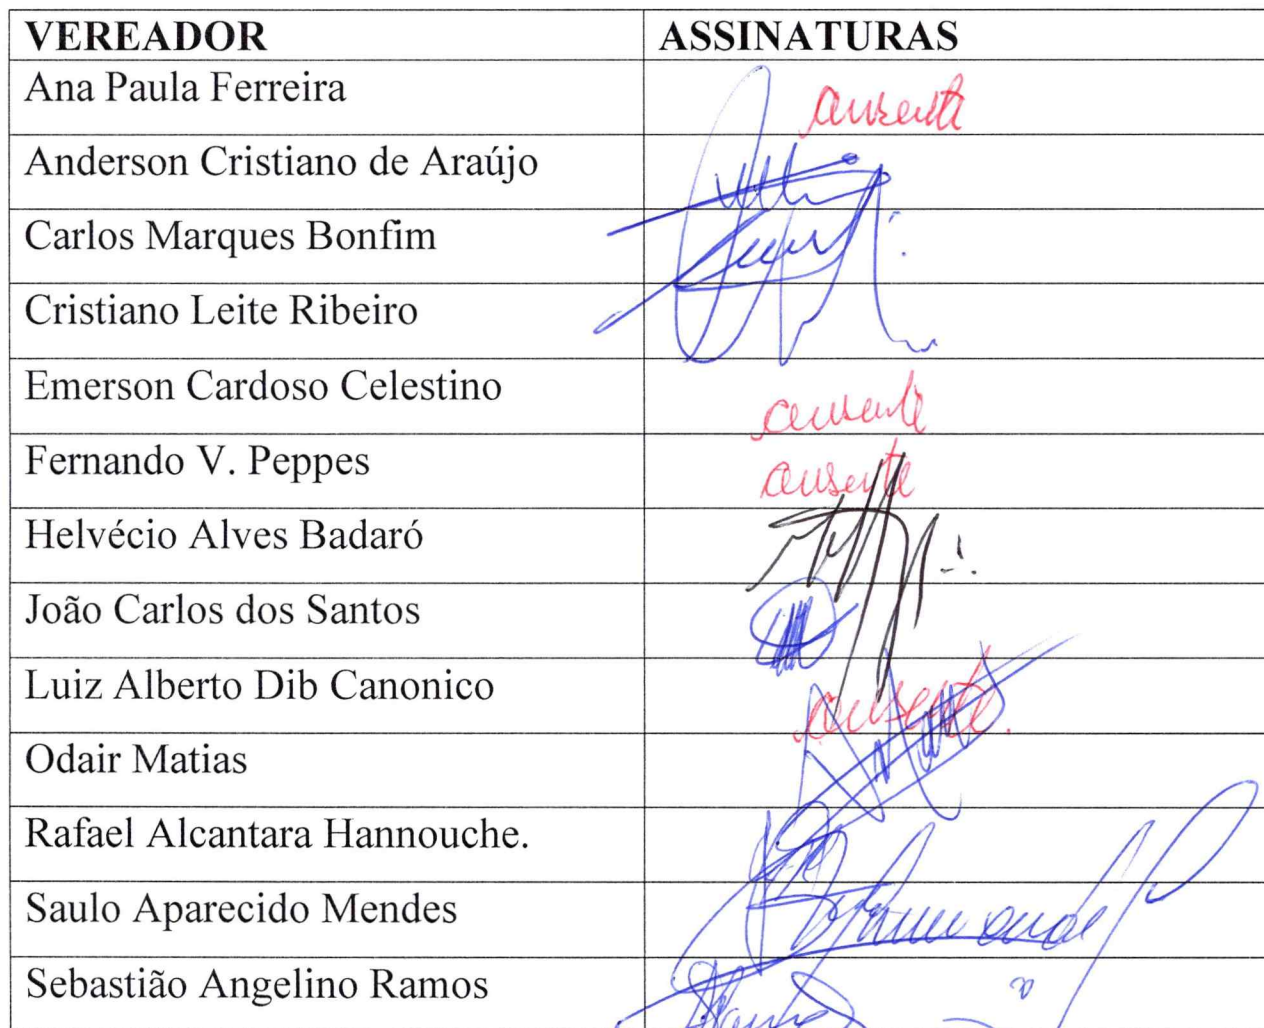 VEREADOR ASSINATURAS
Ana Paula Ferreira ausente
Anderson Cristiano de Araújo
Carlos Marques Bonfim
Cristiano Leite Ribeiro
Emerson Cardoso Celestino ausente
Fernando V. Peppes ausente
Helvécio Alves Badaró
João Carlos dos Santos
Luiz Alberto Dib Canonico ausente.
Odair Matias
Rafael Alcantara Hannouche.
Saulo Aparecido Mendes
Sebastião Angelino Ramos